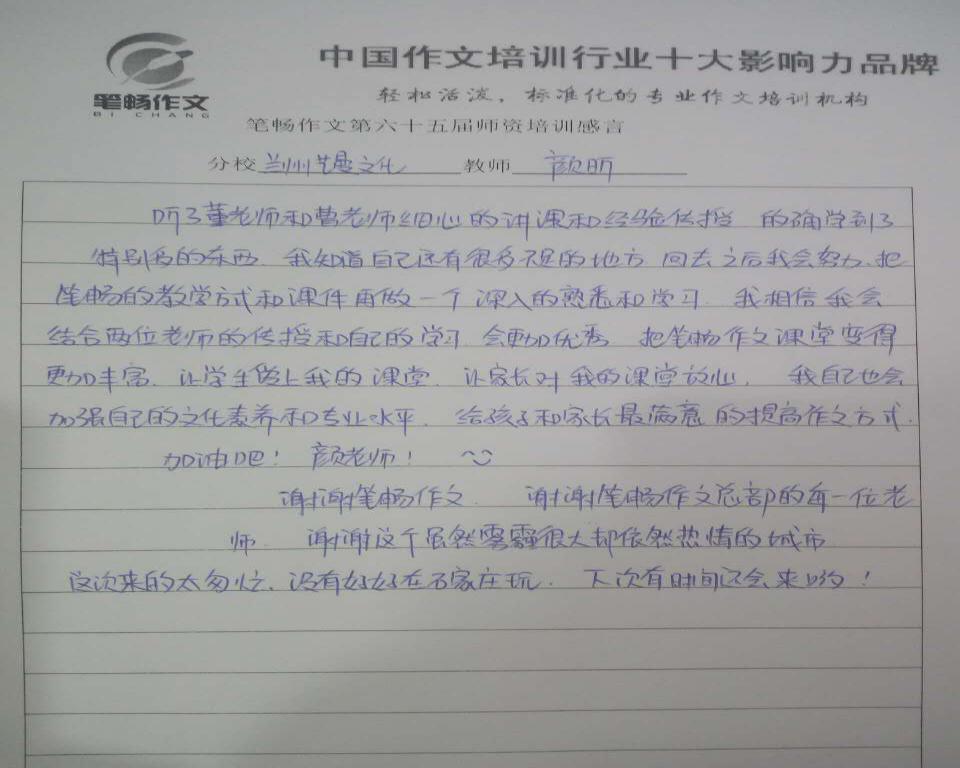 中国作文培训行业十大影响力品牌
笔畅作文
BI CHANG
轻松活泼,标准化的专业作文培训机构
笔畅作文第六十五届师资培训感言
分校 兰州 文化 教师 颜昕
听了董老师和曹老师细心的讲课和经验传授 的确学到了
特别多的东西. 我知道自己还有很多不足的地方 回去之后我会努力.把
笔畅的教学方式和课件再做一个 深入的熟悉和学习. 我相信我会
结合两位老师的传授和自己的学习 会更加优秀 把笔畅作文课堂变得
更加丰富. 让学生 上我的课堂. 让家长对我的课堂放心. 我自己也会
加强自己的文化素养和专业水平. 给孩子和家长最满意的提高作文方式.
加油吧! 颜老师!
谢谢笔畅作文. 谢谢笔畅作文总部的每一位老
师. 谢谢这个虽然雾霾很大却依然热情的城市
这次来的太匆忙.没有好好在石家庄玩. 下次有时间还会来哟!